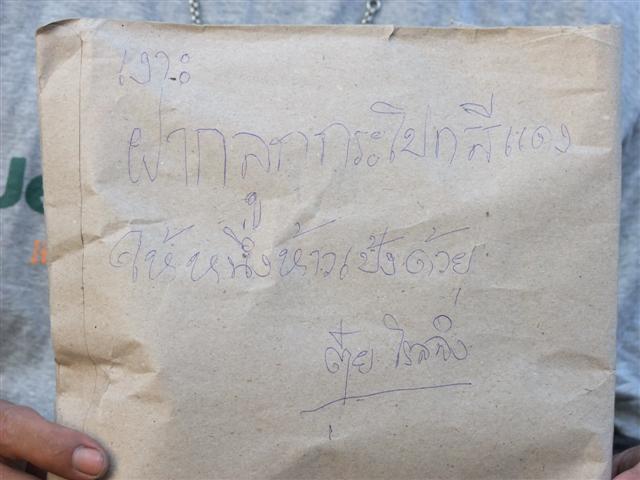 เงาะ
ฝากลูกกระโปกสีแดง
ให้หนึ่งห้าวเป้งด้วย
ตุ้ย